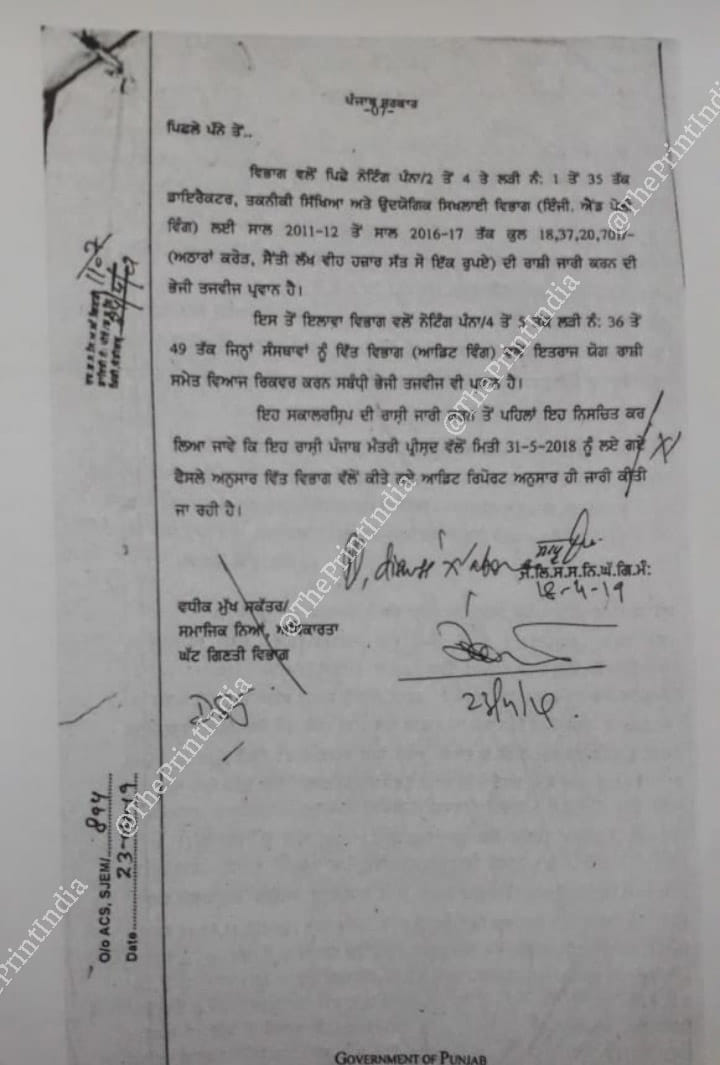 ਪੰਜਾਬ ਸਰਕਾਰ
ਪਿਛਲੇ ਪੰਨੇ ਤੋਂ..
ਵਿਭਾਗ ਵਲੋਂ ਪਿਛੇ ਨੋਟਿੰਗ ਪੰਨਾ/2 ਤੋਂ 4 ਤੇ ਲੜੀ ਨੰ: 1 ਤੋਂ 35 ਤੱਕ
ਡਾਇਰੈਕਟਰ, ਤਕਨੀਕੀ ਸਿੱਖਿਆ ਅਤੇ ਉਦਯੋਗਿਕ ਸਿਖਲਾਈ ਵਿਭਾਗ (ਇੰਜੀ. ਐਂਡ
ਵਿੰਗ) ਲਈ ਸਾਲ 2011-12 ਤੋਂ ਸਾਲ 2016-17 ਤੱਕ ਕੁਲ 18,37,20,701/-
(ਅਠਾਰਾਂ ਕਰੋੜ, ਸੈਂਤੀ ਲੱਖ ਵੀਹ ਹਜ਼ਾਰ ਸੱਤ ਸੋ ਇੱਕ ਰੁਪਏ) ਦੀ ਰਾਸ਼ੀ ਜਾਰੀ ਕਰਨ ਦੀ
ਭੇਜੀ ਤਜਵੀਜ ਪ੍ਰਵਾਨ ਹੈ।
ਇਸ ਤੋਂ ਇਲਾਵਾ ਵਿਭਾਗ ਵਲੋਂ ਨੋਟਿੰਗ ਪੰਨਾ/4 ਤੋਂ 5 ਤੱਕ ਲੜੀ ਨੰ: 36 ਤੋਂ
49 ਤੱਕ ਜਿਨ੍ਹਾਂ ਸੰਸਥਾਵਾਂ ਨੂੰ ਵਿੱਤ ਵਿਭਾਗ (ਆਡਿਟ ਵਿੰਗ) ਵਲੋਂ ਇਤਰਾਜ ਯੋਗ ਰਾਸ਼ੀ
ਸਮੇਤ ਵਿਆਜ ਰਿਕਵਰ ਕਰਨ ਸਬੰਧੀ ਭੇਜੀ ਤਜਵੀਜ ਵੀ ਪ੍ਰਵਾਨ ਹੈ।
ਇਹ ਸਕਾਲਰਸ਼ਿਪ ਦੀ ਰਾਸ਼ੀ ਜਾਰੀ ਕਰਨ ਤੋਂ ਪਹਿਲਾਂ ਇਹ ਨਿਸਚਿਤ ਕਰ
ਲਿਆ ਜਾਵੇ ਕਿ ਇਹ ਰਾਸ਼ੀ ਪੰਜਾਬ ਮੰਤਰੀ ਪ੍ਰੀਸ਼ਦ ਵੱਲੋਂ ਮਿਤੀ 31-5-2018 ਨੂੰ ਲਏ ਗਏ
ਫੈਸਲੇ ਅਨੁਸਾਰ ਵਿੱਤ ਵਿਭਾਗ ਵੱਲੋਂ ਕੀਤੇ ਗਏ ਆਡਿਟ ਰਿਪੋਰਟ ਅਨੁਸਾਰ ਹੀ ਜਾਰੀ ਕੀਤੀ
ਜਾ ਰਹੀ ਹੈ।
discuss 'X'
ਸ.ਸ.ਨਿ.ਘੱ.ਗਿ.ਮੰ:
ਵਧੀਕ ਮੁੱਖ ਸਕੱਤਰ/
ਸਮਾਜਿਕ ਨਿਆਂ, ਅਧਿਕਾਰਤਾ
ਘੱਟ ਗਿਣਤੀ ਵਿਭਾਗ
O/o ACS, SJEM/ 894
Date
GOVERNMENT OF PUNJAB
@ThePrintIndia
@ThePrintIndia
@ThePrintIndia
@ThePrintIndia
ePrintIndia